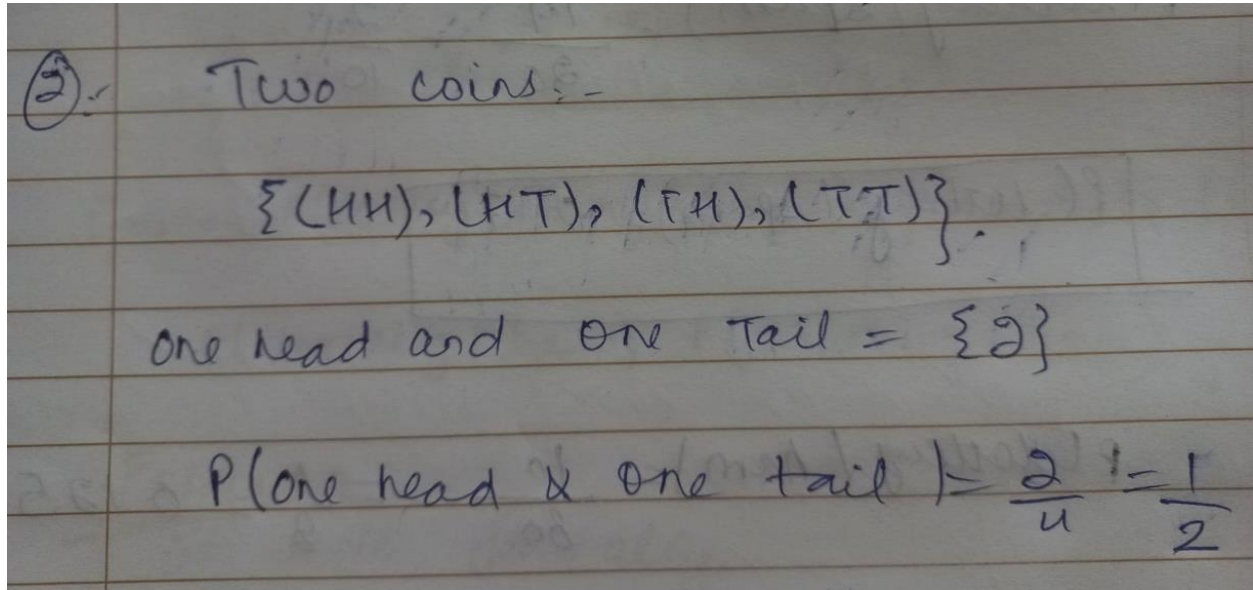 2.
Two coins:-
{(HH), (HT), (TH), (TT)}.
one head and one Tail = {2}
P(one head & one tail) = 2/4 = 1/2